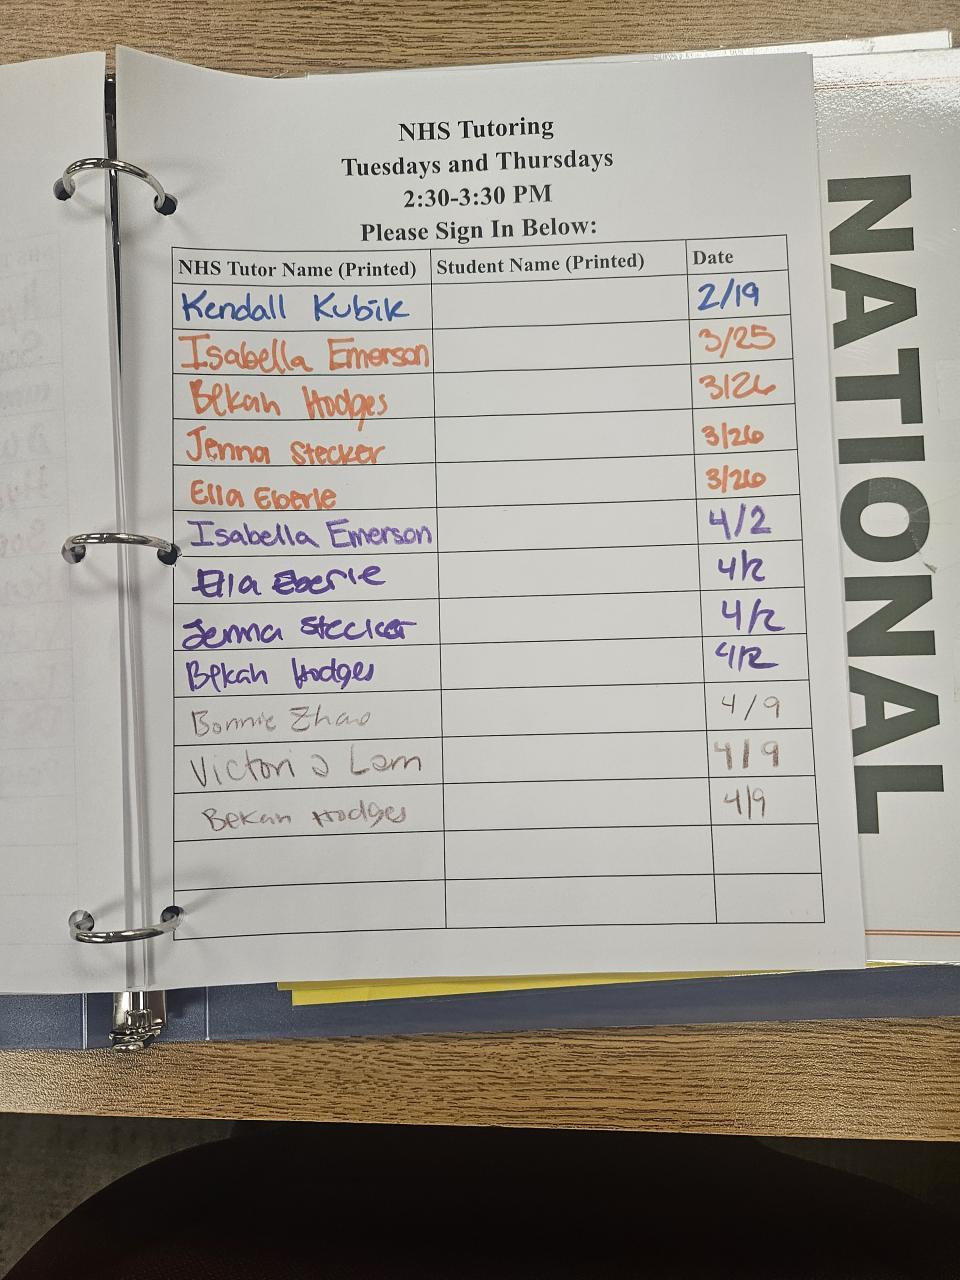 NHS Tutoring
Tuesdays and Thursdays
2:30-3:30 PM
Please Sign In Below:
NHS Tutor Name (Printed) Student Name (Printed) Date
Kendall Kubik 2/19
Isabella Emerson 3/25
Bekah Hodges 3/26
Jenna Stecker 3/26
Ella Eberle 3/26
Isabella Emerson 4/2
Ella Eberle 4/2
Jenna Stecker 4/2
Bekah Hodges 4/2
Bonnie Zhao 4/9
Victoria Lam 4/9
Bekah Hodges 4/9
NATIONAL